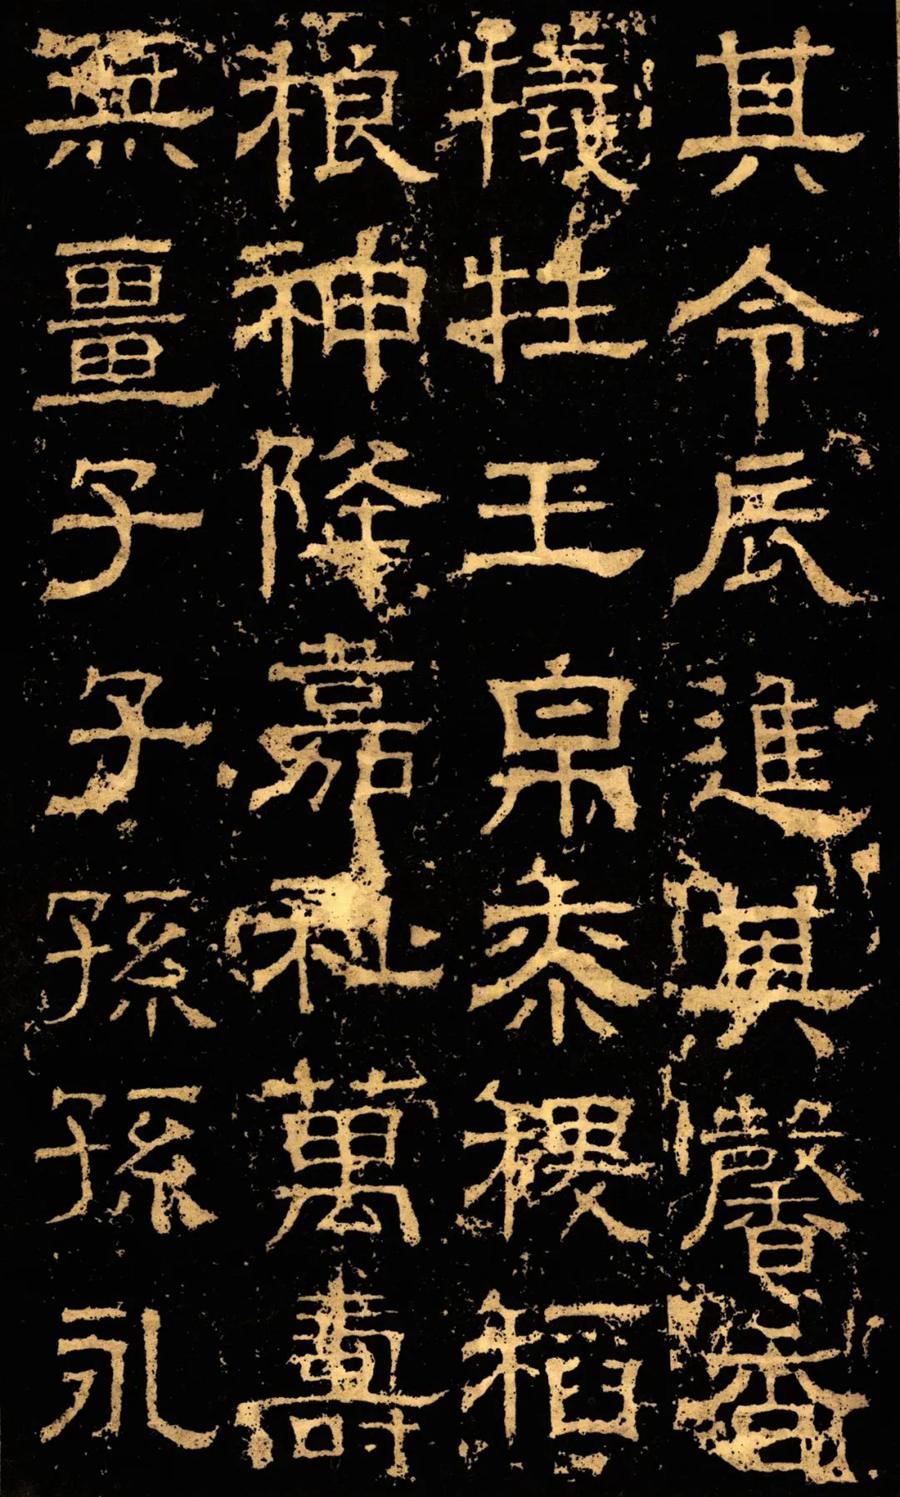 其令辰進其馨香
犧牲玉帛黍稷稻
粮神降嘉祉萬壽
無畺子子孫孫永